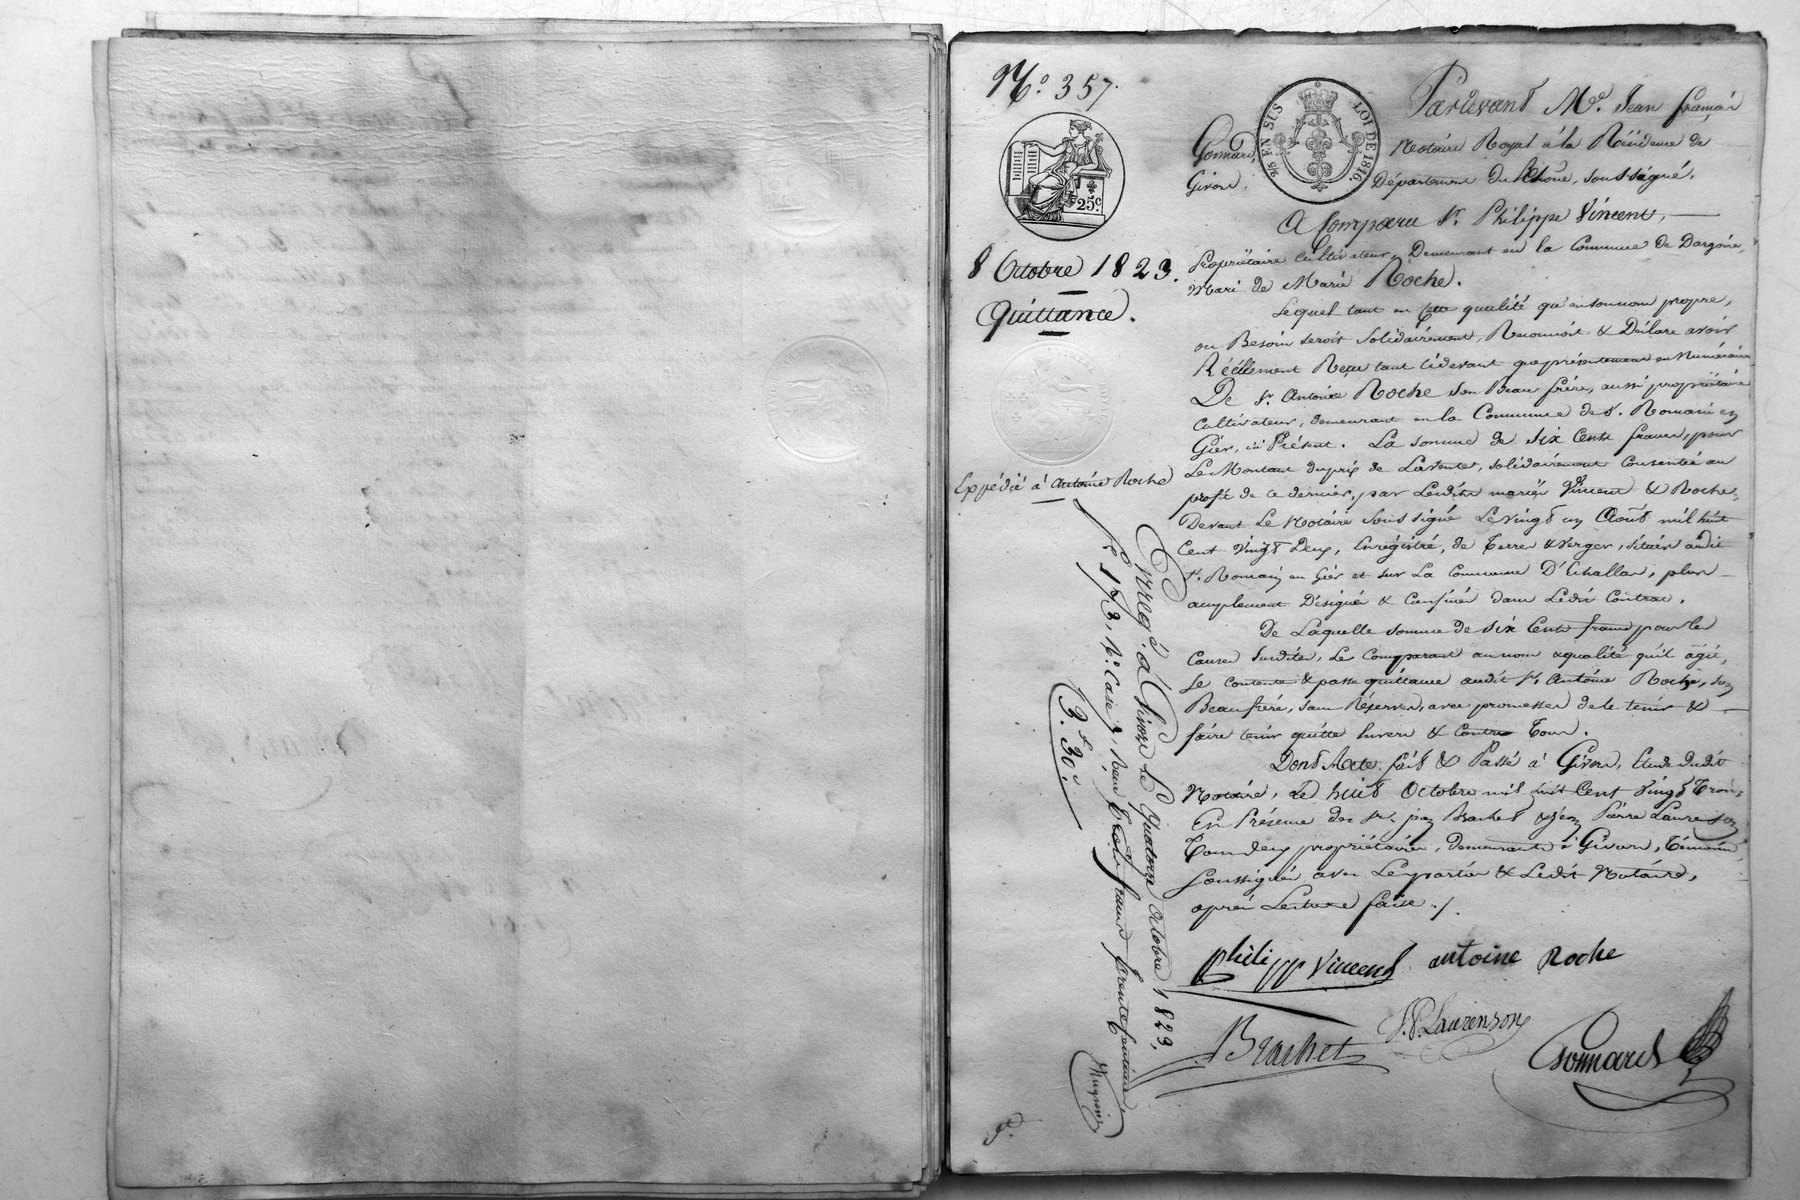 N.º 357.
LOI DE 1816.
5/5 EN SUS
25.c
8 Octobre 1823.
Quittance.
Expédié à Antoine Roche
Pardevant M.e Jean françois
Gonnard, Notaire Royal à la Résidence de
Givors, Département du Rhône, soussigné,
A Comparu Sr. Philippe Vincent,
Propriétaire Cultivateur, Demeurant en la Commune de Dargoire,
Mari de Marie Roche.
Lequel tant en cette qualité qu'en son nom propre,
ou Besoin seroit solidairement, Reconnoit & Déclare avoir
Réellement Reçu tant cidevant que présentement en Numéraire
De Sr. Antoine Roche son Beau frère, aussi propriétaire
Cultivateur, demeurant en la Commune de St. Romain en
Gier, ici Présent. La somme de six Cents francs, pour
Le Montant du prix de La vente, solidairement Consentie au
profit de ce dernier, par Lesdits mariés Vincent & Roche,
Devant Le Notaire soussigné Le vingt un Août mil huit
Cent vingt Deux, Enregistré, de Terre & verger, situés audit
St. Romain en Gier et sur La Commune D'Echallas, plus
amplement Désignés & Confinés dans Ledit Contrat.
De Laquelle somme de six Cents francs pour les
Causes susdites, Le Comparant au nom & qualité qu'il agit,
se contente & passe quittance audit Sr. Antoine Roche, son
Beau frère, sans Réserves, avec promesses de le tenir &
faire tenir quitte Envers & Contre Tous.
Dont Acte. fait & Passé à Givors, Etude dudit
Notaire, Le huit Octobre mil huit Cent Vingt Trois,
En Présence des Srs. jean Brachet & Jean Pierre Laurenson
Tous deux propriétaires, demeurants à Givors, Témoins
soussignés avec Les parties & Ledit Notaire,
après Lecture faite ./.
Philipp Vincent antoine Roche
J.P. Laurenson
Brachet
Gonnard
Enreg.é à Givors le Quatorze octobre 1823,
f.o 173, R.o Case 7, Reçu trois francs trente centimes
3.f 30.c